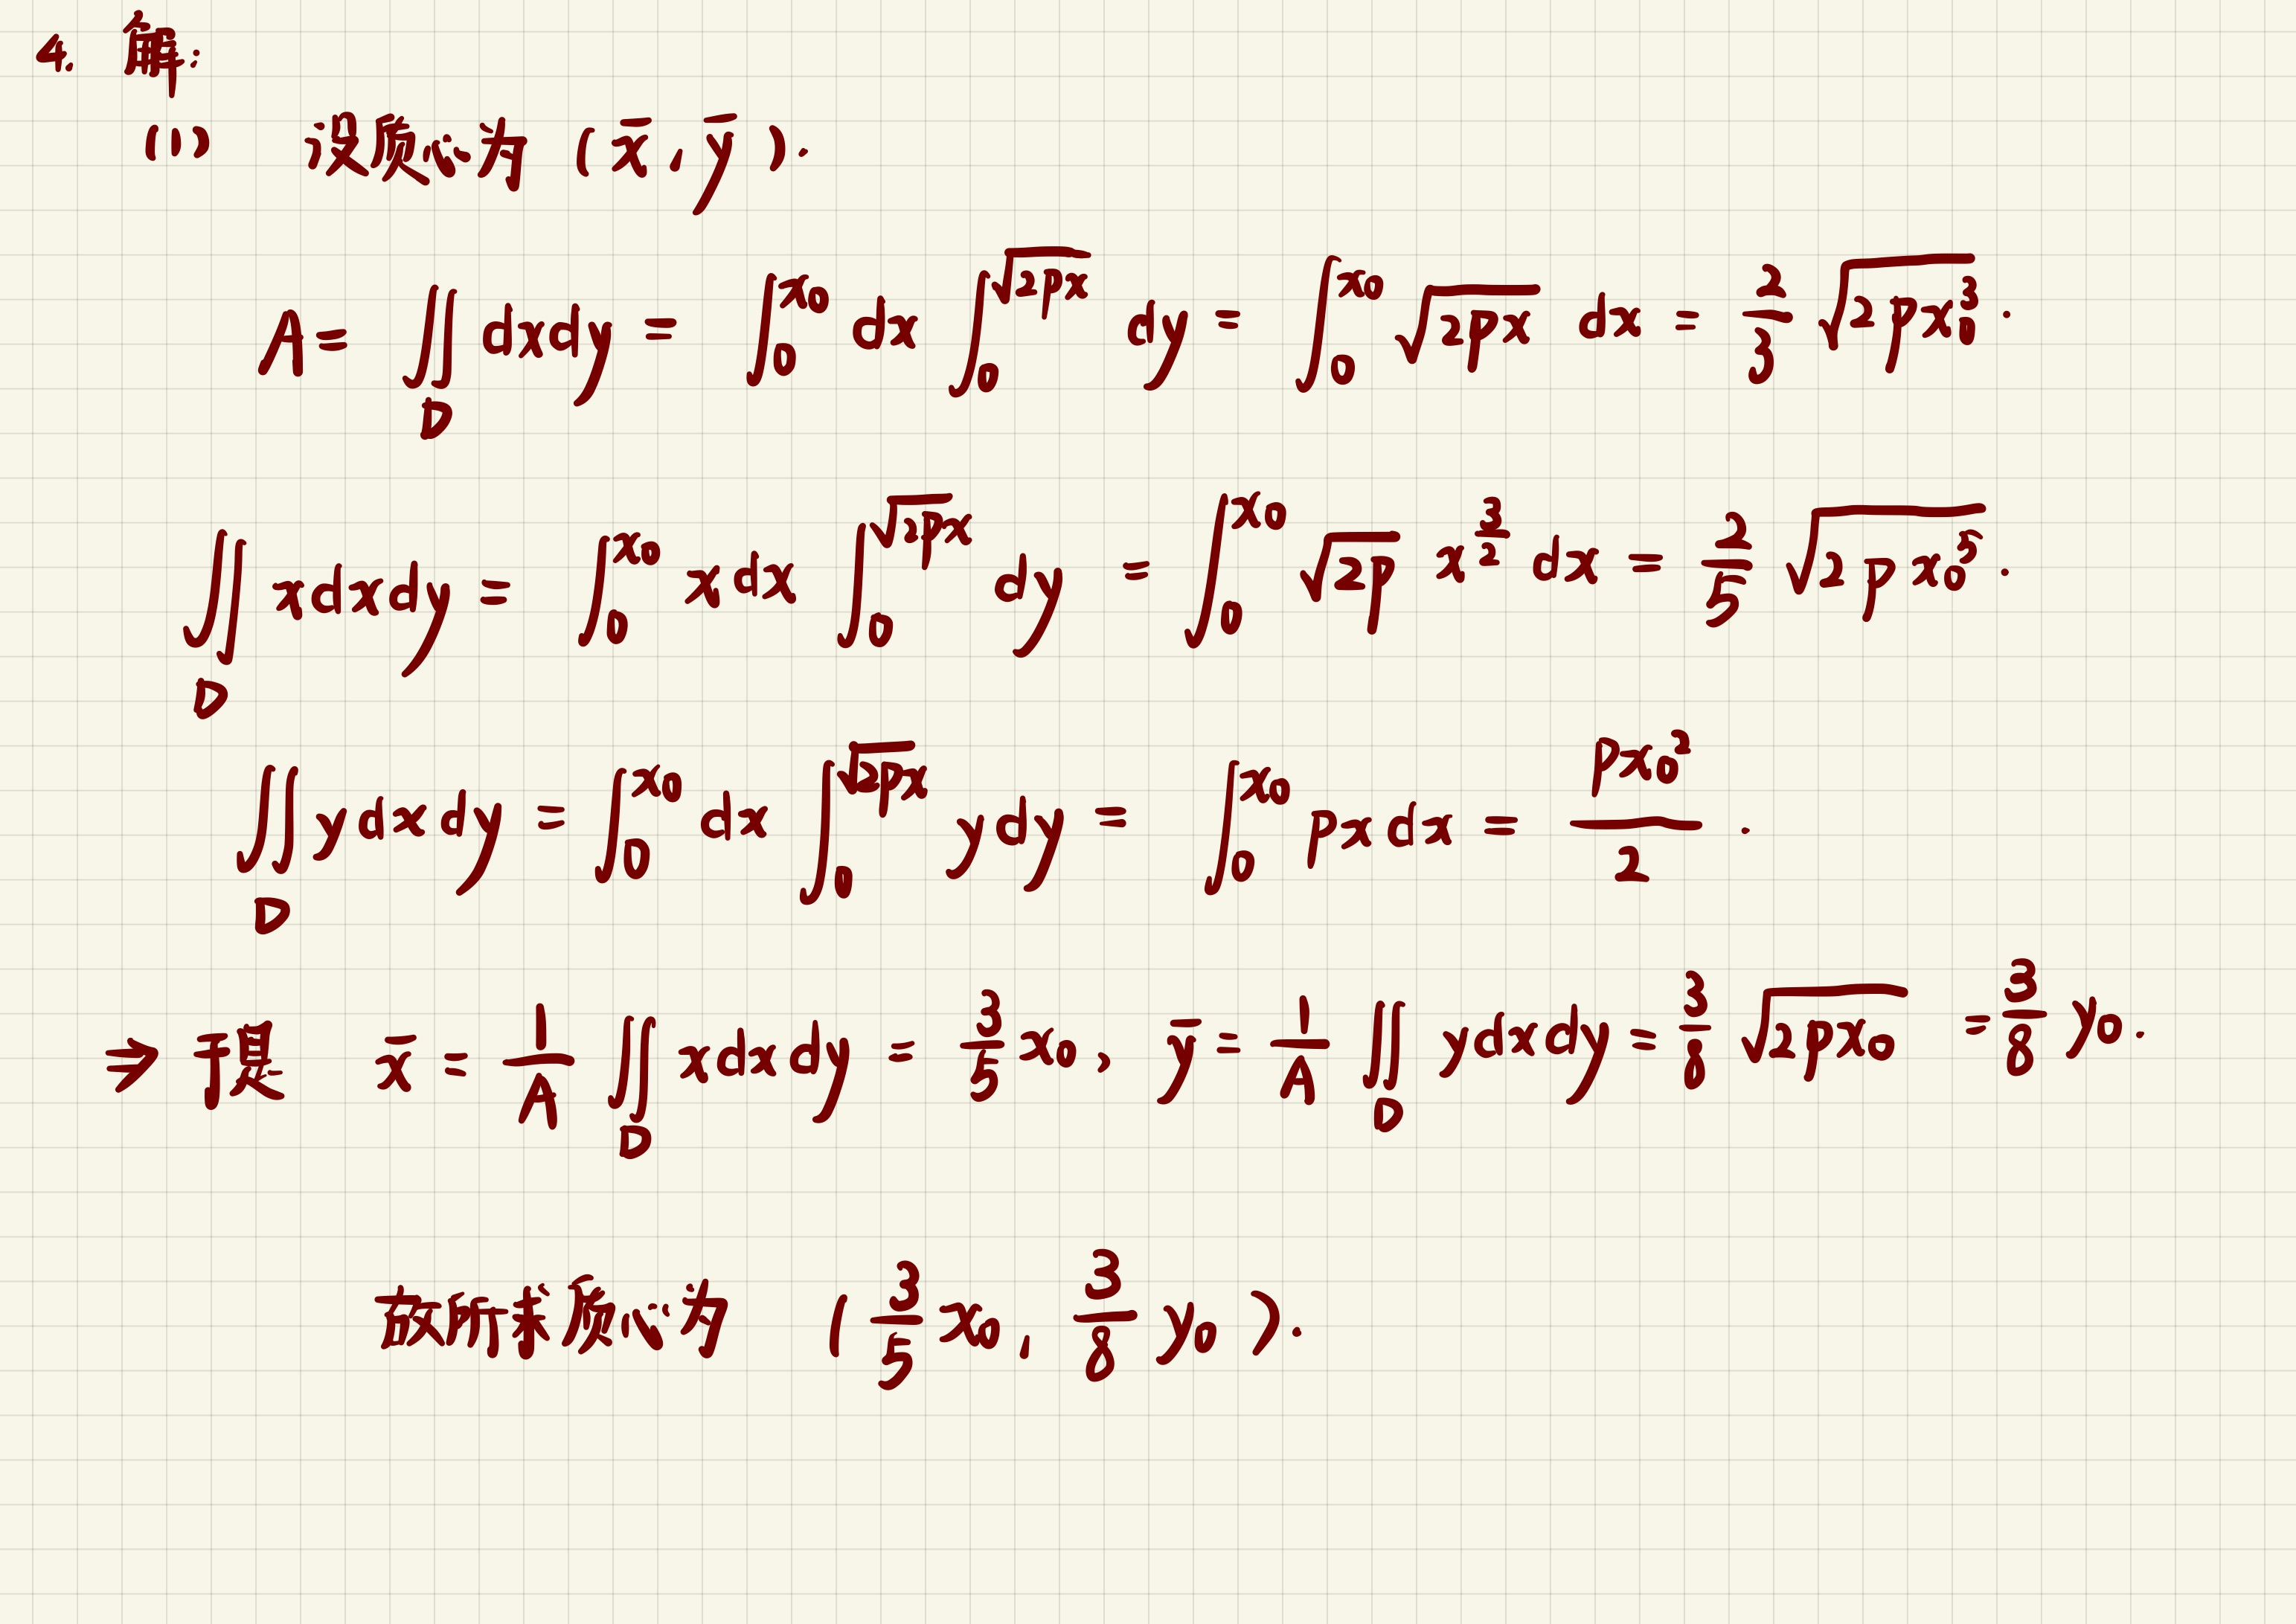 4. 解:
(1) 设质心为 (x̄, ȳ).
A = ∬_D dxdy = ∫_0^{x_0} dx ∫_0^{√(2px)} dy = ∫_0^{x_0} √(2px) dx = 2/3 √(2px_0^3).
∬_D xdxdy = ∫_0^{x_0} xdx ∫_0^{√(2px)} dy = ∫_0^{x_0} √(2p) x^{3/2} dx = 2/5 √(2px_0^5).
∬_D ydxdy = ∫_0^{x_0} dx ∫_0^{√(2px)} ydy = ∫_0^{x_0} pxdx = px_0^2/2.
⇒ 于是 x̄ = 1/A ∬_D xdxdy = 3/5 x_0, ȳ = 1/A ∬_D ydxdy = 3/8 √(2px_0) = 3/8 y_0.
故所求质心为 (3/5 x_0, 3/8 y_0).